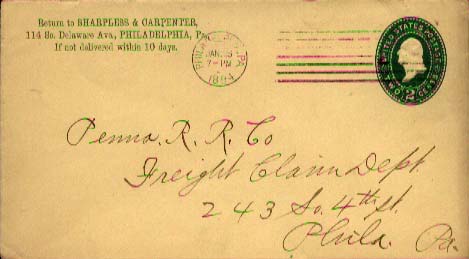 Return to SHARPLESS & CARPENTER,
114 So. Delaware Ave., PHILADELPHIA, Pa.
If not delivered within 10 days.
PHILADELPHIA, PA.
JAN 16
7-PM
1894
UNITED STATES POSTAGE
2
TWO CENTS
Penna. R. R. Co
Freight Claim Dept.
243 So. 4th St.
Phila. Pa.